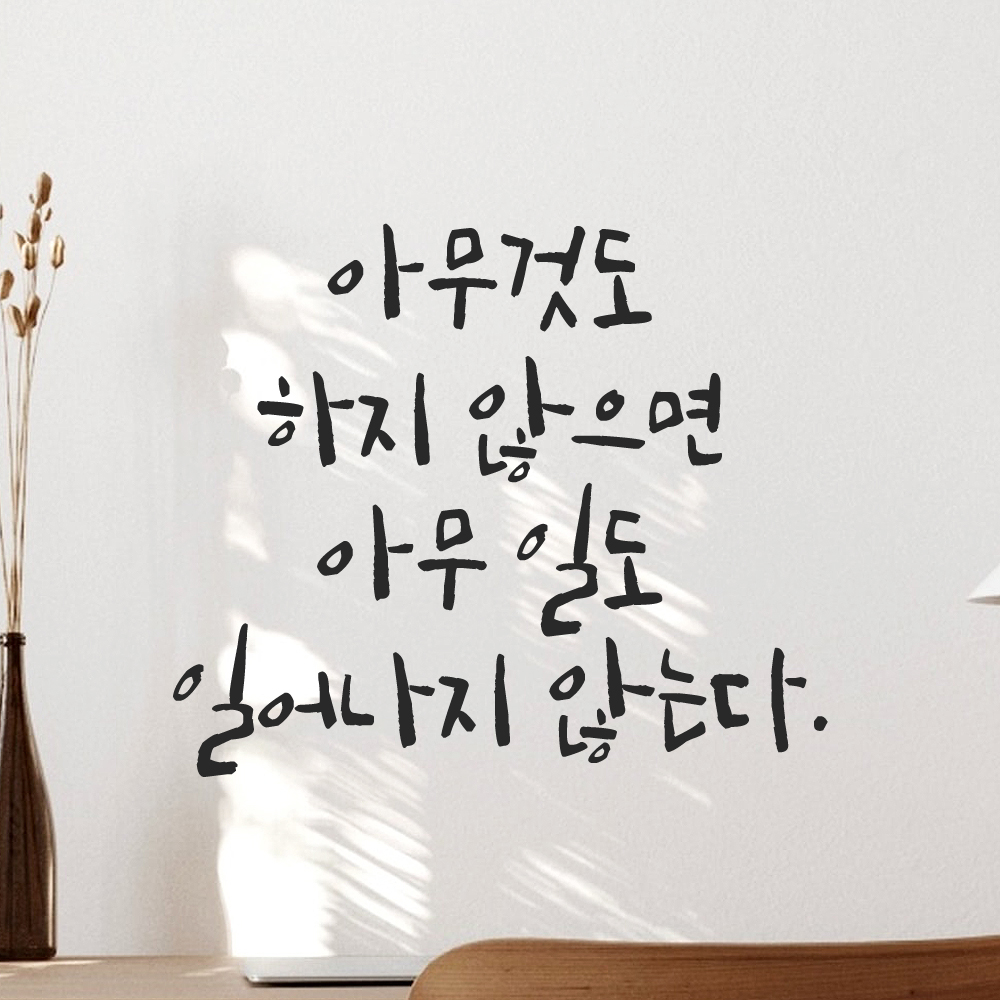 아무것도
하지 않으면
아무 일도
일어나지 않는다.